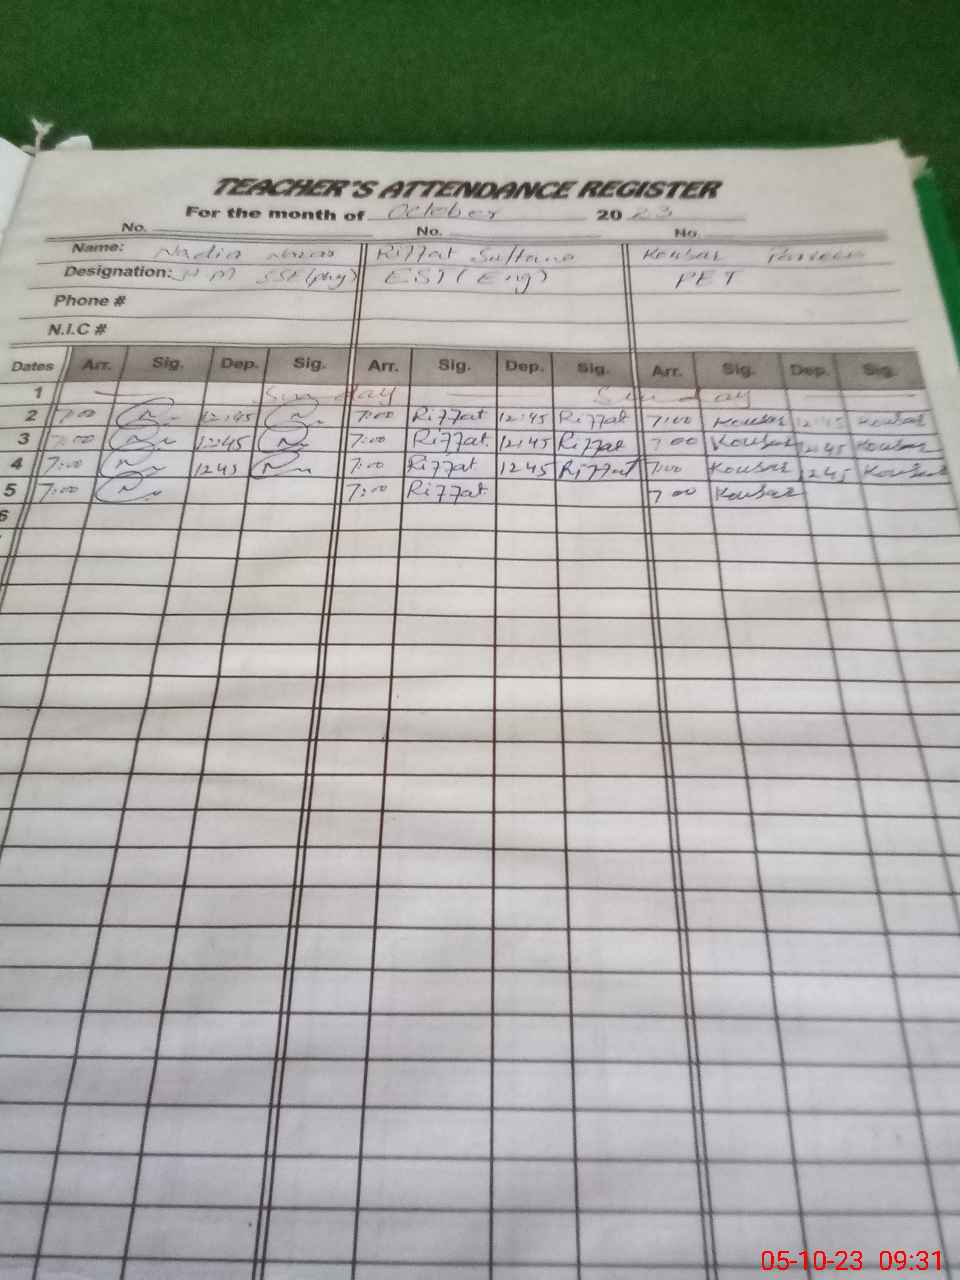 TEACHER'S ATTENDANCE REGISTER
For the month of October 2023
No. No. No.
Name: Nadia Riffat Sultana Kousar
Designation: H M SSE(phy) EST (Eng) PET
Phone #
N.I.C #
Dates Arr. Sig. Dep. Sig. Arr. Sig. Dep. Sig. Arr. Sig. Dep. Sig.
1 Sunday Sunday
2 7:00 12:45 7:00 Riffat 12:45 Riffat 7:00 Kousar 12:45 Kousar
3 7:00 12:45 7:00 Riffat 12:45 Riffat 7 00 Kousar 12:45 Kousar
4 7:00 1245 7:00 Riffat 1245 Riffat 7:00 Kousar 1245 Kousar
5 7:00 7:00 Riffat 7 00 Kousar
6
05-10-23 09:31